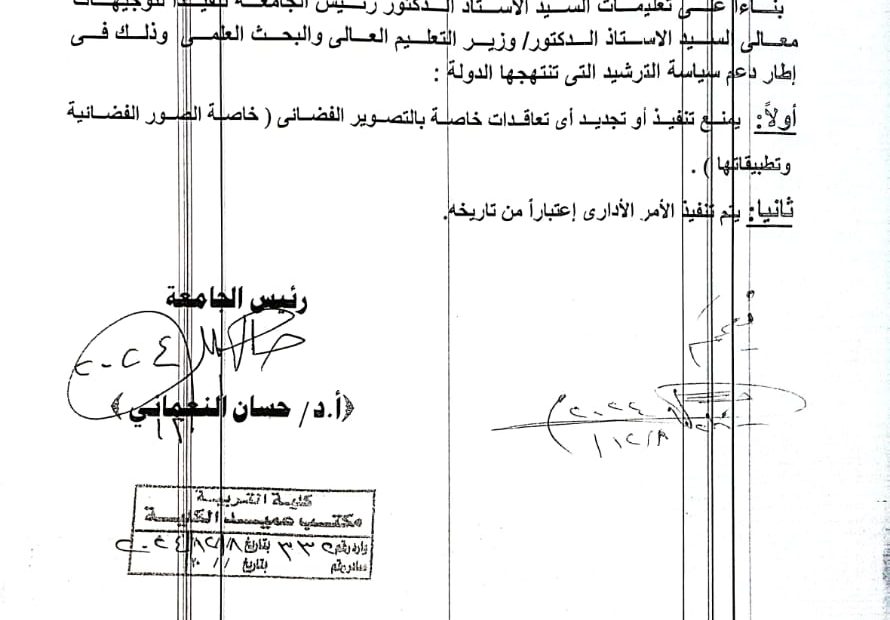 بناءاً على تعليمات السيد الاستاذ الدكتور رئيس الجامعة تنفيذاً لتوجيهات
معالى السيد الاستاذ الدكتور/ وزير التعليم العالى والبحث العلمى وذلك فى
إطار دعم سياسة الترشيد التى تنتهجها الدولة :
أولاً: يمنع تنفيذ أو تجديد أى تعاقدات خاصة بالتصوير الفضائى ( خاصة الصور الفضائية
وتطبيقاتها ) .
ثانيا: يتم تنفيذ الأمر الأدارى إعتباراً من تاريخه.
رئيس الجامعة
٢٠٢٤
«أ.د/ حسان النعماني»
٢٠٢٤
١٢/٨
كلية التربية
مكتب عميد الكلية
وارد رقم ٣٣٢ بتاريخ ١٢/٨ ٢٠٢٤
صادر رقم بتاريخ / / ٢٠